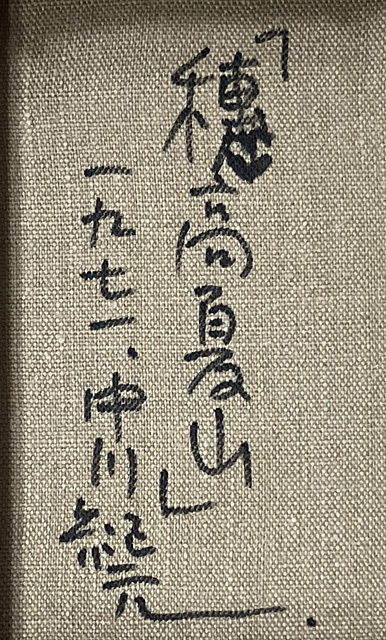 「穂高夏山」
一九七一、中川紀元